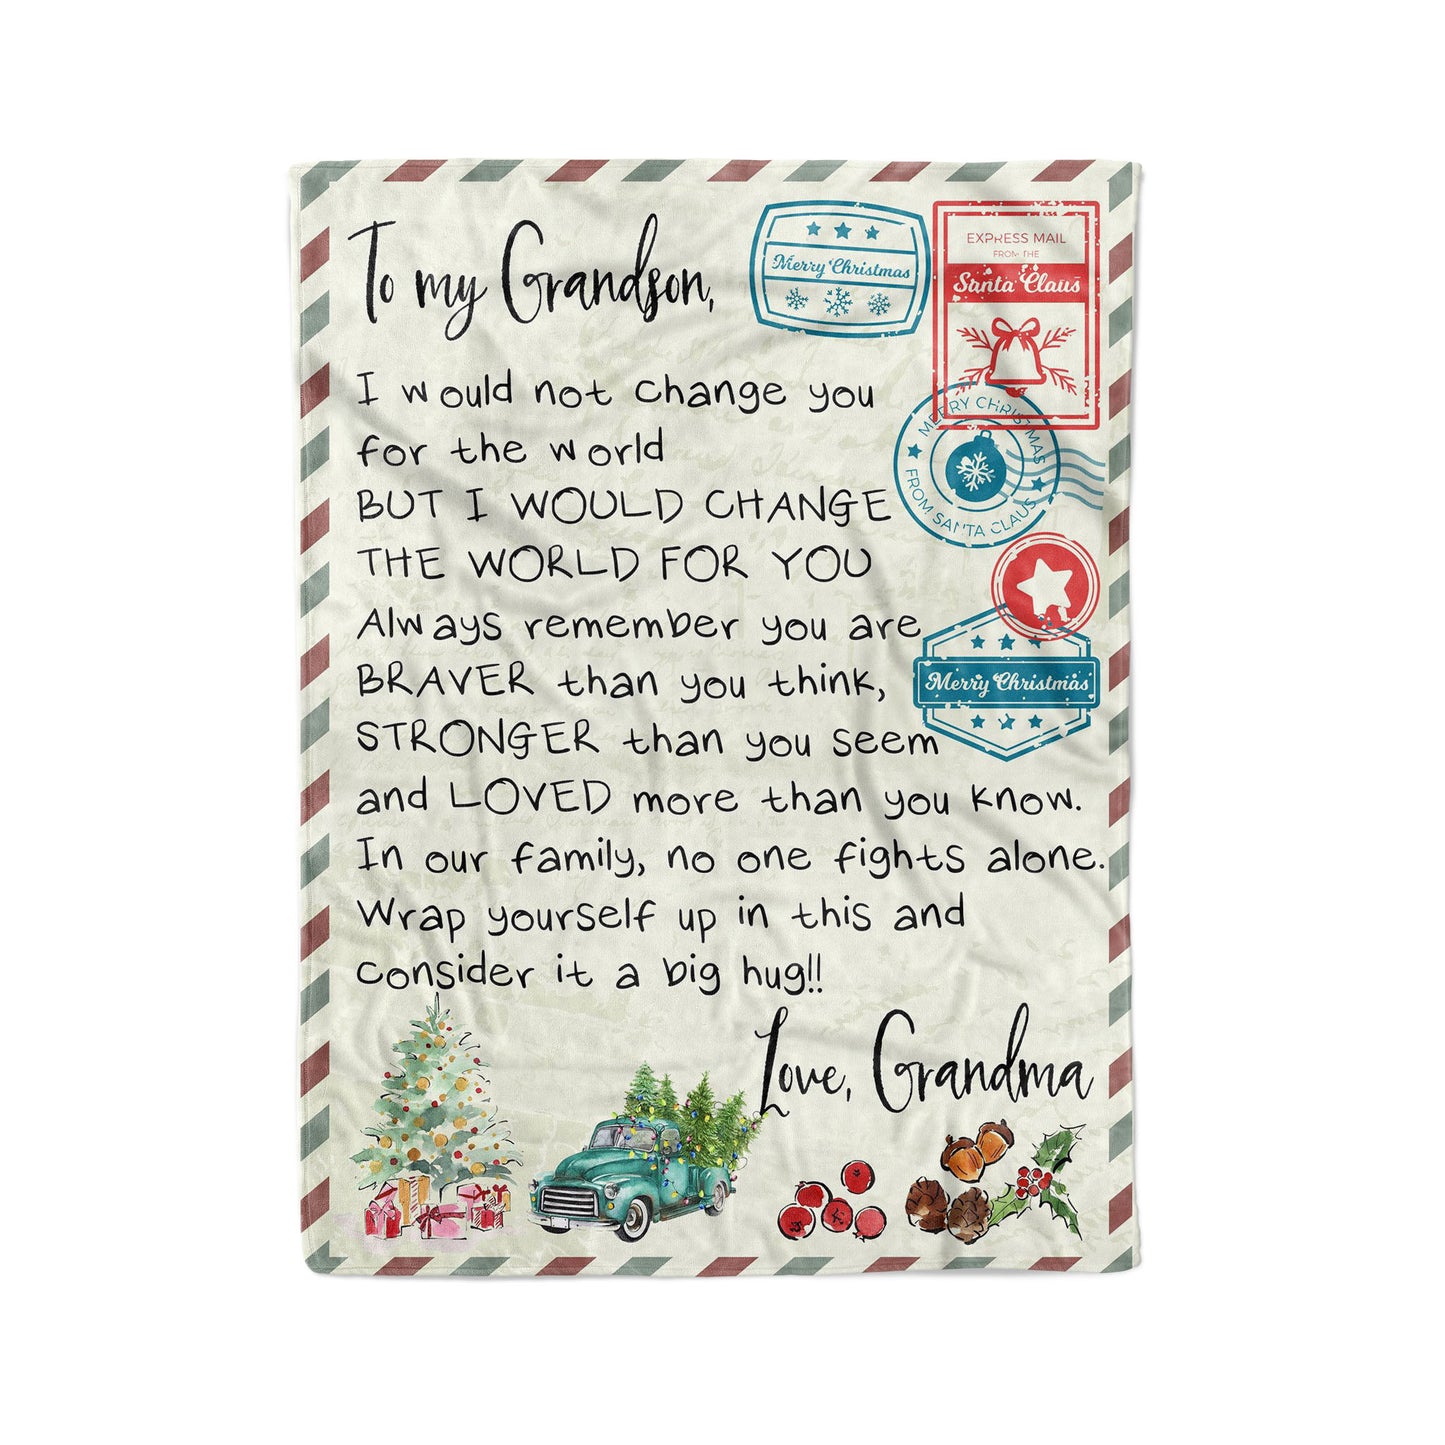 To my Grandson,
Merry Christmas
EXPRESS MAIL
FROM THE
Santa Claus
I would not change you
for the world
MERRY CHRISTMAS
FROM SANTA CLAUS
BUT I WOULD CHANGE
THE WORLD FOR YOU
Always remember you are
BRAVER than you think,
Merry Christmas
STRONGER than you seem
and LOVED more than you know.
In our family, no one fights alone.
Wrap yourself up in this and
consider it a big hug!!
Love, Grandma